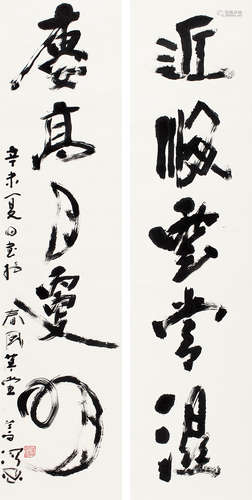 近海雲常湿
廔高月更明
辛未夏日書於春風草堂